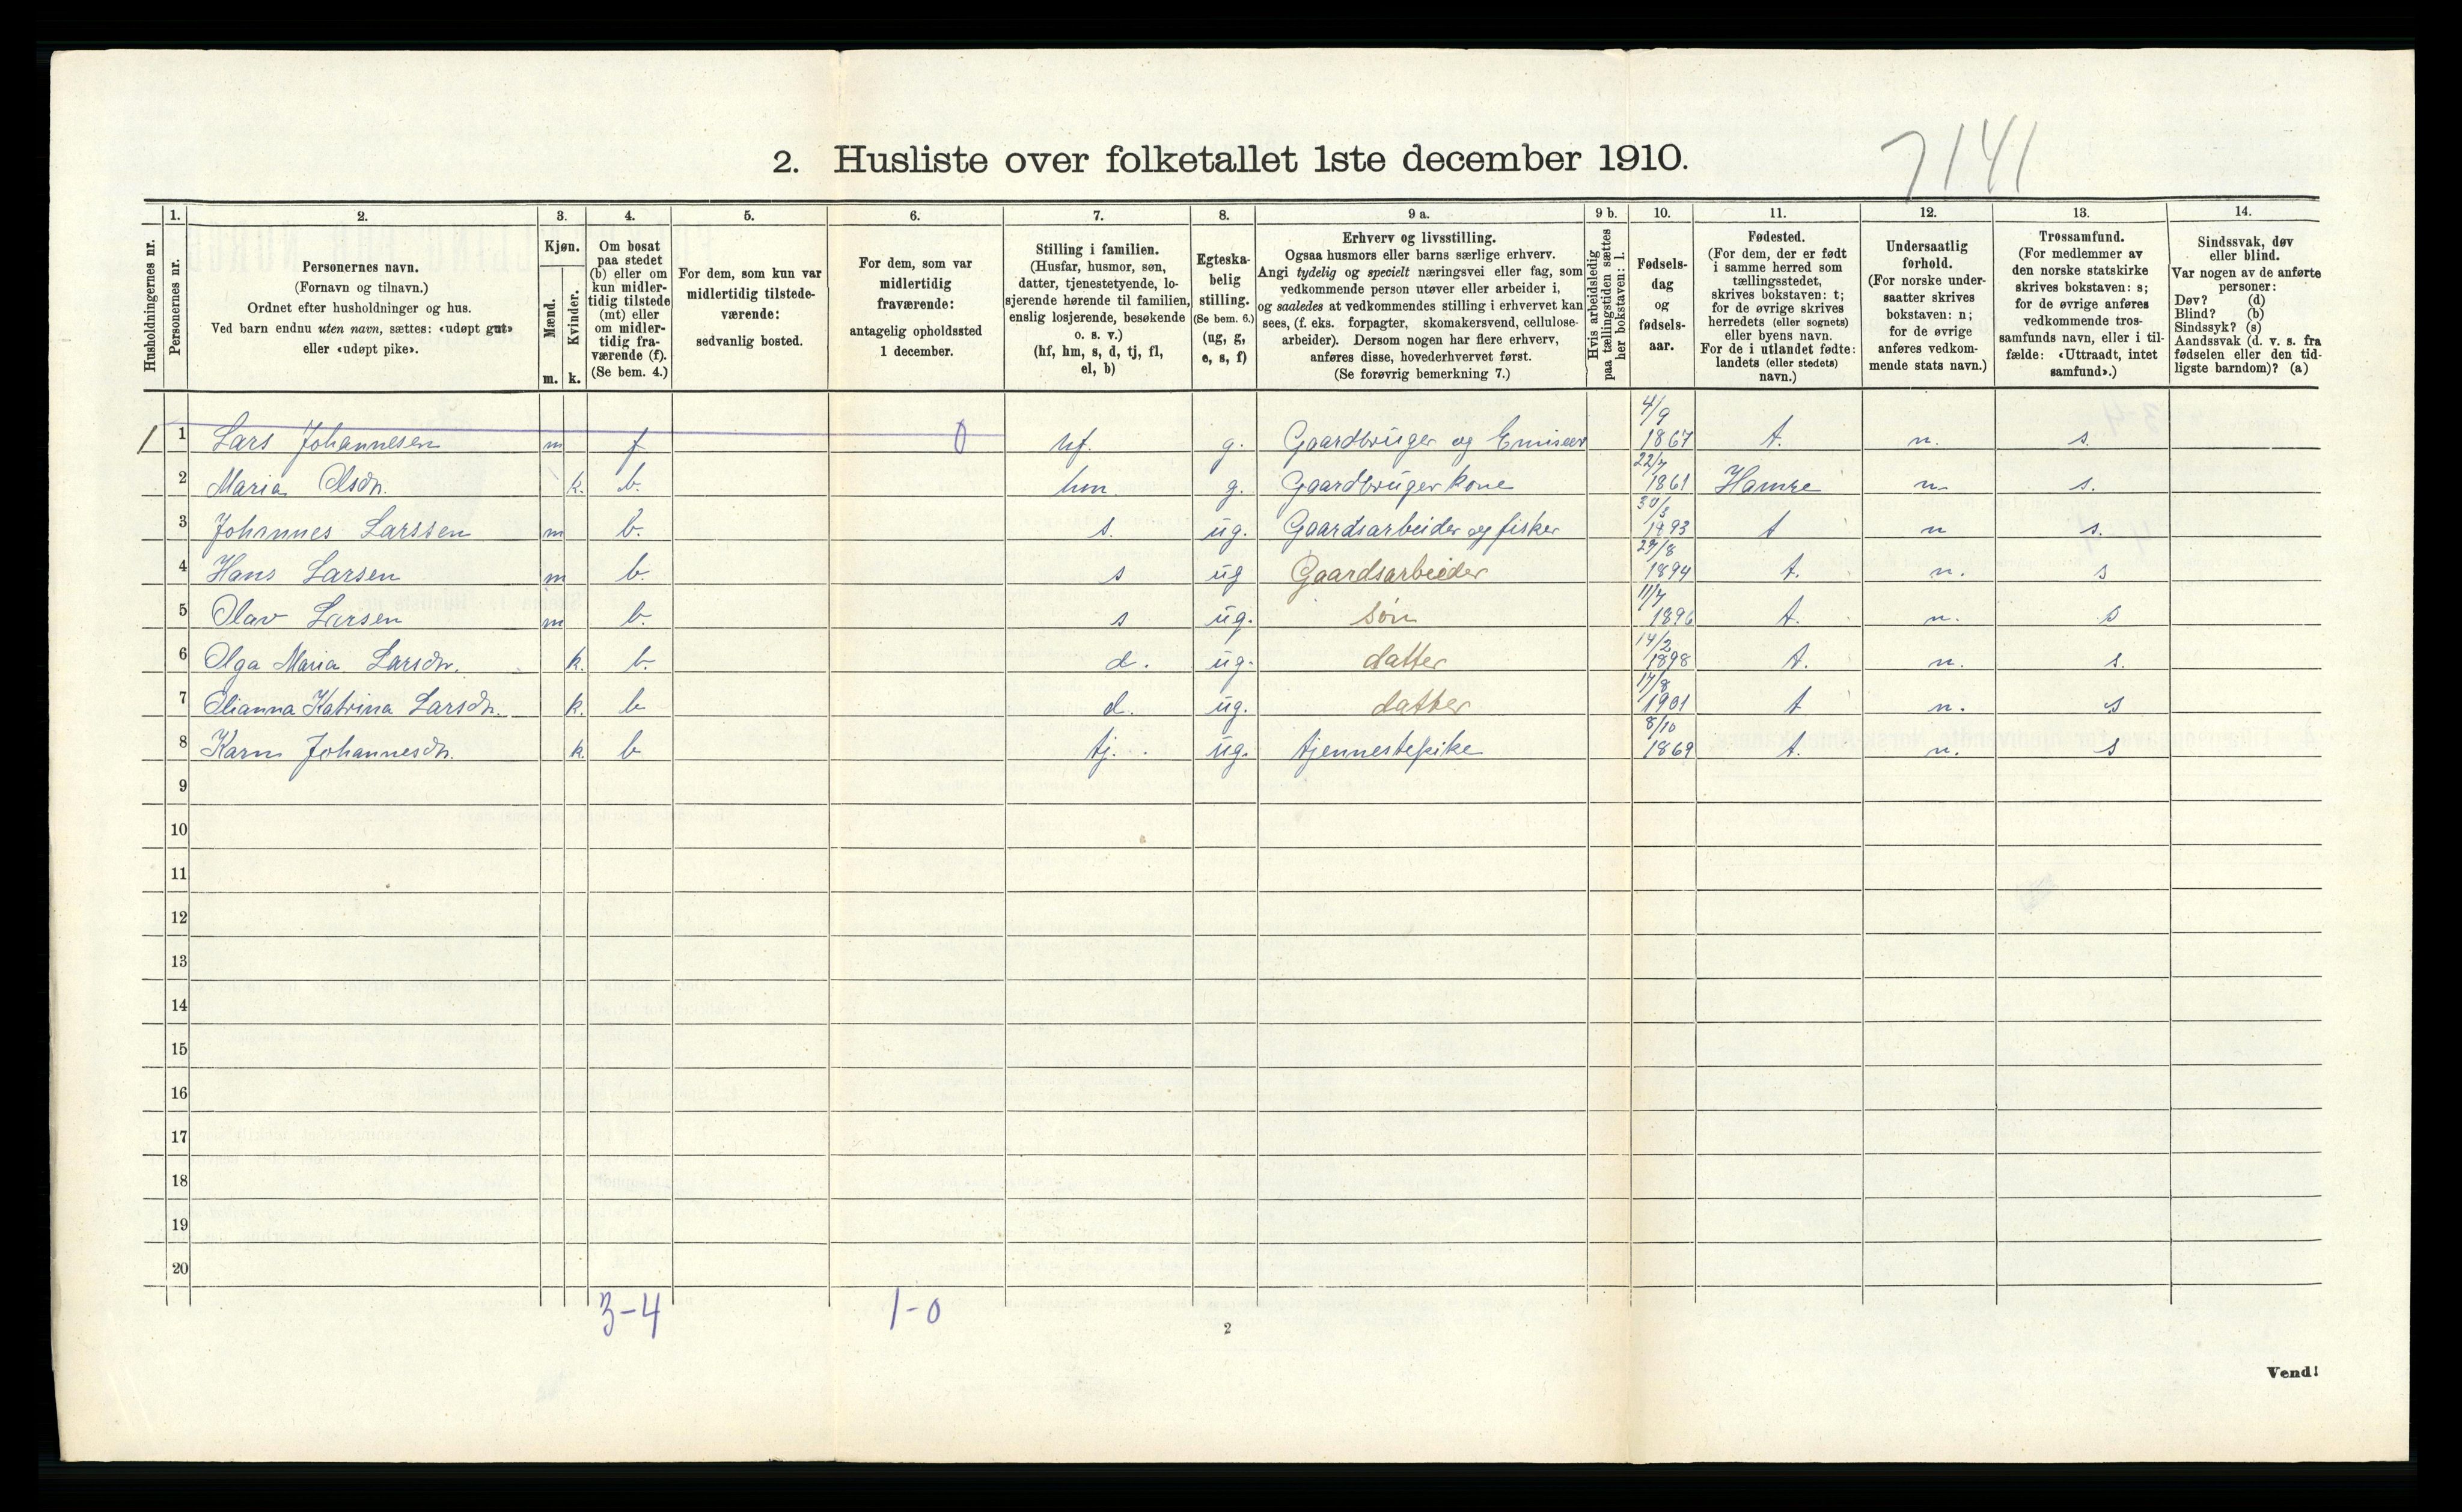 7141
2. Husliste over folketallet 1ste december 1910.
1. 2. 3. 4. 5. 6. 7. 8. 9 a. 9 b. 10. 11. 12. 13. 14.
Husholdningernes nr.
Personernes nr.
Personernes navn.
(Fornavn og tilnavn.)
Ordnet efter husholdninger og hus.
Ved barn endnu uten navn, sættes: «udøpt gut»
eller «udøpt pike».
Kjøn.
Mænd.
Kvinder.
m. k.
Om bosat
paa stedet
(b) eller om
kun midler-
tidig tilstede
(mt) eller
om midler-
tidig fra-
værende (f).
(Se bem. 4.)
For dem, som kun var
midlertidig tilstede-
værende:
sedvanlig bosted.
For dem, som var
midlertidig
fraværende:
antagelig opholdssted
1 december.
Stilling i familien.
(Husfar, husmor, søn,
datter, tjenestetyende, lo-
sjerende hørende til familien,
enslig losjerende, besøkende
o. s. v.)
(hf, hm, s, d, tj, fl,
el, b)
Egteska-
belig
stilling.
(Se bem. 6.)
(ug, g,
e, s, f)
Erhverv og livsstilling.
Ogsaa husmors eller barns særlige erhverv.
Angi tydelig og specielt næringsvei eller fag, som
vedkommende person utøver eller arbeider i,
og saaledes at vedkommendes stilling i erhvervet kan
sees, (f. eks. forpagter, skomakersvend, cellulose-
arbeider). Dersom nogen har flere erhverv,
anføres disse, hovederhvervet først.
(Se forøvrig bemerkning 7.)
Hvis arbeidsledig
paa tællingstiden sættes
her bokstaven: l.
Fødsels-
dag
og
fødsels-
aar.
Fødested.
(For dem, der er født
i samme herred som
tællingsstedet,
skrives bokstaven: t;
for de øvrige skrives
herredets (eller sognets)
eller byens navn.
For de i utlandet fødte:
landets (eller stedets)
navn.)
Undersaatlig
forhold.
(For norske under-
saatter skrives
bokstaven: n;
for de øvrige
anføres vedkom-
mende stats navn.)
Trossamfund.
(For medlemmer av
den norske statskirke
skrives bokstaven: s;
for de øvrige anføres
vedkommende tros-
samfunds navn, eller i til-
fælde: «Uttraadt, intet
samfund».)
Sindssvak, døv
eller blind.
Var nogen av de anførte
personer:
Døv? (d)
Blind? (b)
Sindssyk? (s)
Aandssvak (d. v. s. fra
fødselen eller den tid-
ligste barndom)? (a)
1 1 Lars Johannesen m f 0 hf. g. Gaardbruger og Emisær 4/9 1867 t. n. s.
2 Maria Olsdn. k. b. hm. g. Gaardbrugerkone 22/7 1861 Hamre n. s.
3 Johannes Larssen m b. s. ug. Gaardsarbeider og fisker 1893 t n s.
4 Hans Larsen m b. s ug Gaardsarbeider 1894 t. n. s
5 Olav Larsen m b. s ug. søn 11/7 1896 t. n. s
6 Olga Maria Larsdn. k. b. d. ug. datter 14/2 1898 t. n. s.
7 Olianna Katrina Larsdn. k. b d. ug. datter 17/8 1901 t n. s
8 Karn Johannesdn. k. b tj. ug. tjennestepike 8/10 1869 t. n. s
9
10
11
12
13
14
15
16
17
18
19
20
3-4 1-0
2
Vend!